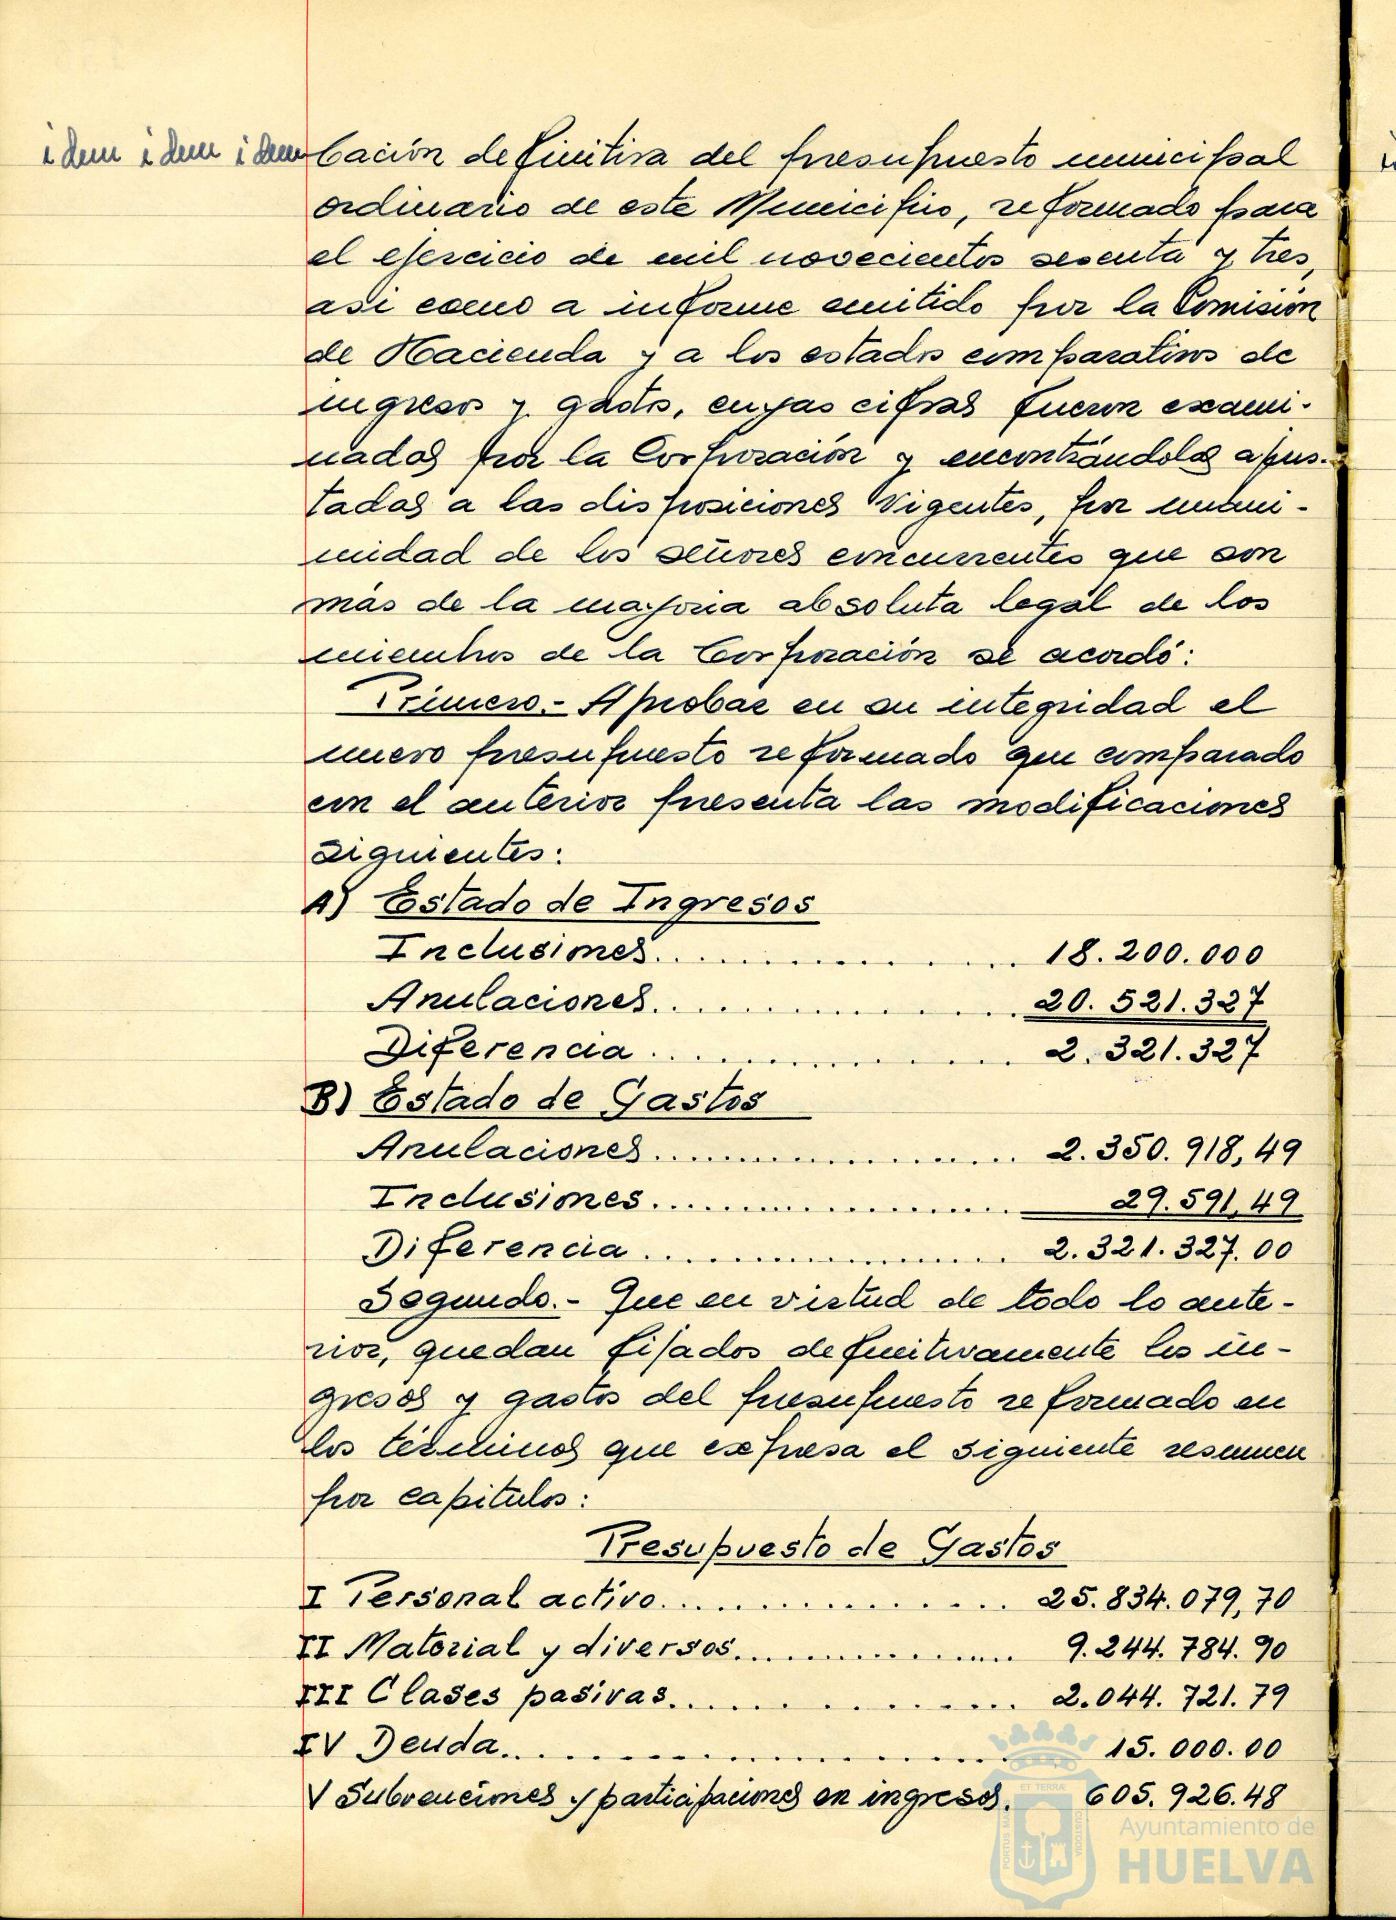 idem idem idem
bación definitiva del presupuesto municipal
ordinario de este Municipio, reformado para
el ejercicio de mil novecientos sesenta y tres,
asi como a informe emitido por la Comisión
de Hacienda y a los estados comparativos de
ingresos y gastos, cuyas cifras fueron exami-
nadas por la Corporación y encontrándolas ajus-
tadas a las disposiciones vigentes, por unani-
midad de los señores concurrentes que son
más de la mayoria absoluta legal de los
miembros de la Corporación se acordó:
Primero.- Aprobar en su integridad el
nuevo presupuesto reformado que comparado
con el anterior presenta las modificaciones
siguientes:
A) Estado de Ingresos
Inclusiones................ 18.200.000
Anulaciones................ 20.521.327
Diferencia................ 2.321.327
B) Estado de Gastos
Anulaciones................ 2.350.918,49
Inclusiones................ 29.591,49
Diferencia................ 2.321.327.00
Segundo.- Que en virtud de todo lo ante-
rior, quedan fijados definitivamente los in-
gresos y gastos del presupuesto reformado en
los términos que expresa el siguiente resumen
por capitulos:
Presupuesto de Gastos
I Personal activo................ 25.834.079,70
II Material y diversos................ 9.244.784.90
III Clases pasivas................ 2.044.721.79
IV Deuda................ 15.000.00
V Subvenciones y participaciones en ingresos. 605.926.48
PORTUS MARIS ET TERRAE CUSTODIA
Ayuntamiento de
HUELVA